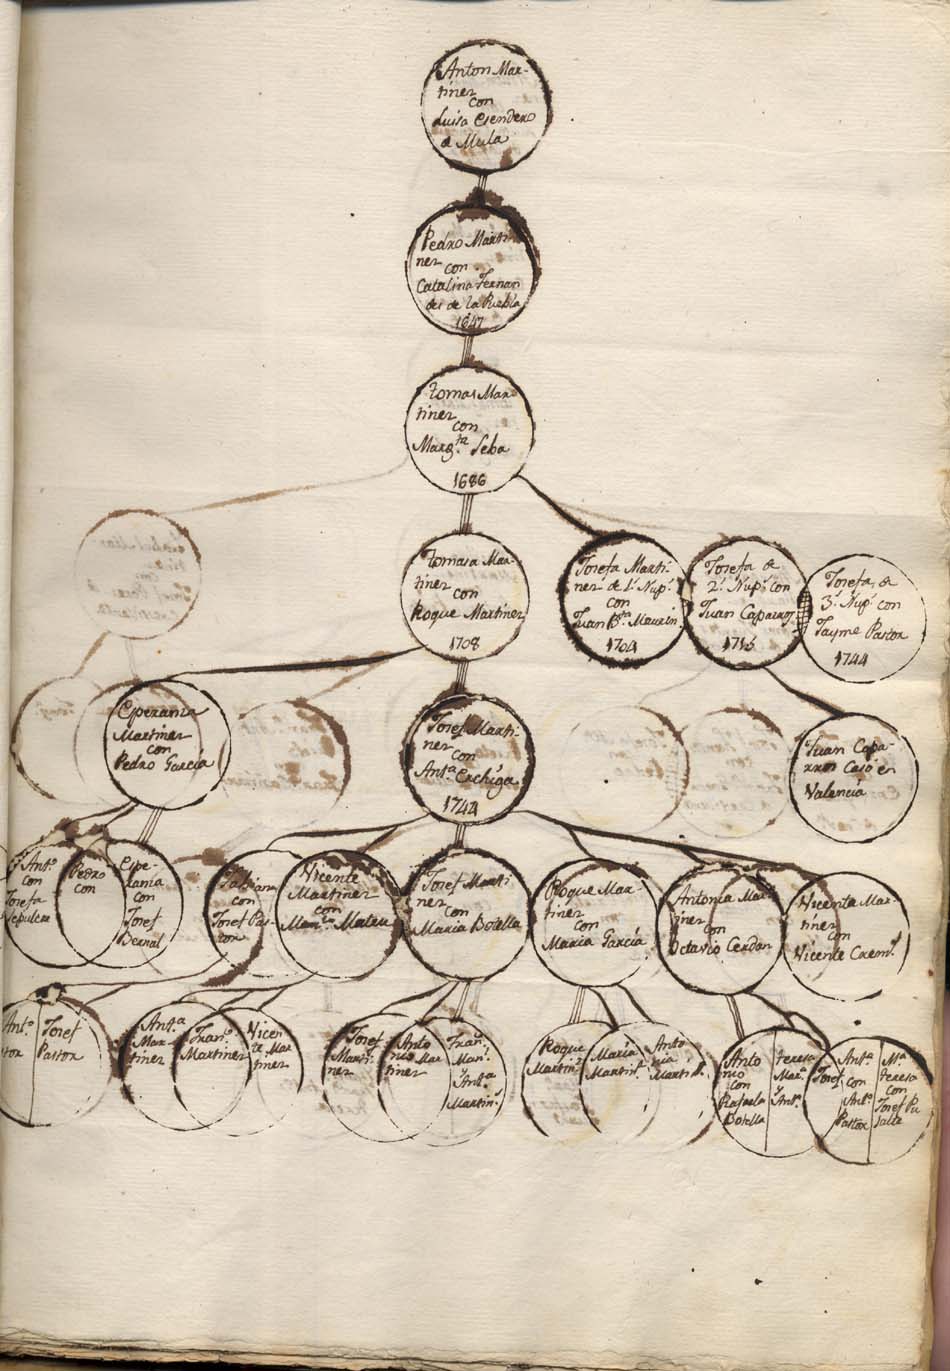 Anton Mar-
tinez
con
Luisa Esendero
de Mula
Pedro Marti-
nez
con
Catalina Fernan
des de la Puebla
1647
tomas Mar
tinez
con
Marg.ta Seba
1686
tomasa Mar-
tinez
con
Roque Martinez
1708
Josefa Marti-
nez de 1.ª Nup.s
con
Juan B.ta Maurin
1704
Josefa de
2.ª Nup.s con
Juan Caparros
1715
Josefa de
3.ª Nup.s con
Jayme Pastor
1744
Esperanza
Martinez
con
Pedro García
Josef Marti-
nez
con
Ant.a Erchiga
1744
Juan Capa-
rros Casó en
Valencia
Ant.o
con
Josefa
Sepulcre
Pedro
con
Espe-
ranía
con
Josef
Bernal
Fabiana
con
Josef Pas-
tor
Vicente
Martinez
con
Man.la Mateu
Josef Marti
nez
con
Maria Botella
Roque Mar-
tinez
con
María García
Antonia Mar
tinez
con
Octavio Cerdan
Vicenta Mar-
tínez
con
Vicente Crem.s
Ant.o
stor
Josef
Pastor
Ant.a
Mar-
tinez
Fran.o
Martinez
Vicen
te Mar
tinez
Josef
Marti-
nez
Anto
nio Mar
tinez
Fran.o
Mar.
y Ant.a
Martin.s
Roque
Martin.s
María
Martin.s
Anto
nia
Martin.
Anto
nio
con
Rafaela
Botella
teresa
Mar.a
y Ant.o
Josef
Ant.a
con
Ant.o
Pastor
M.a
teresa
con
Josef Pu
jalte